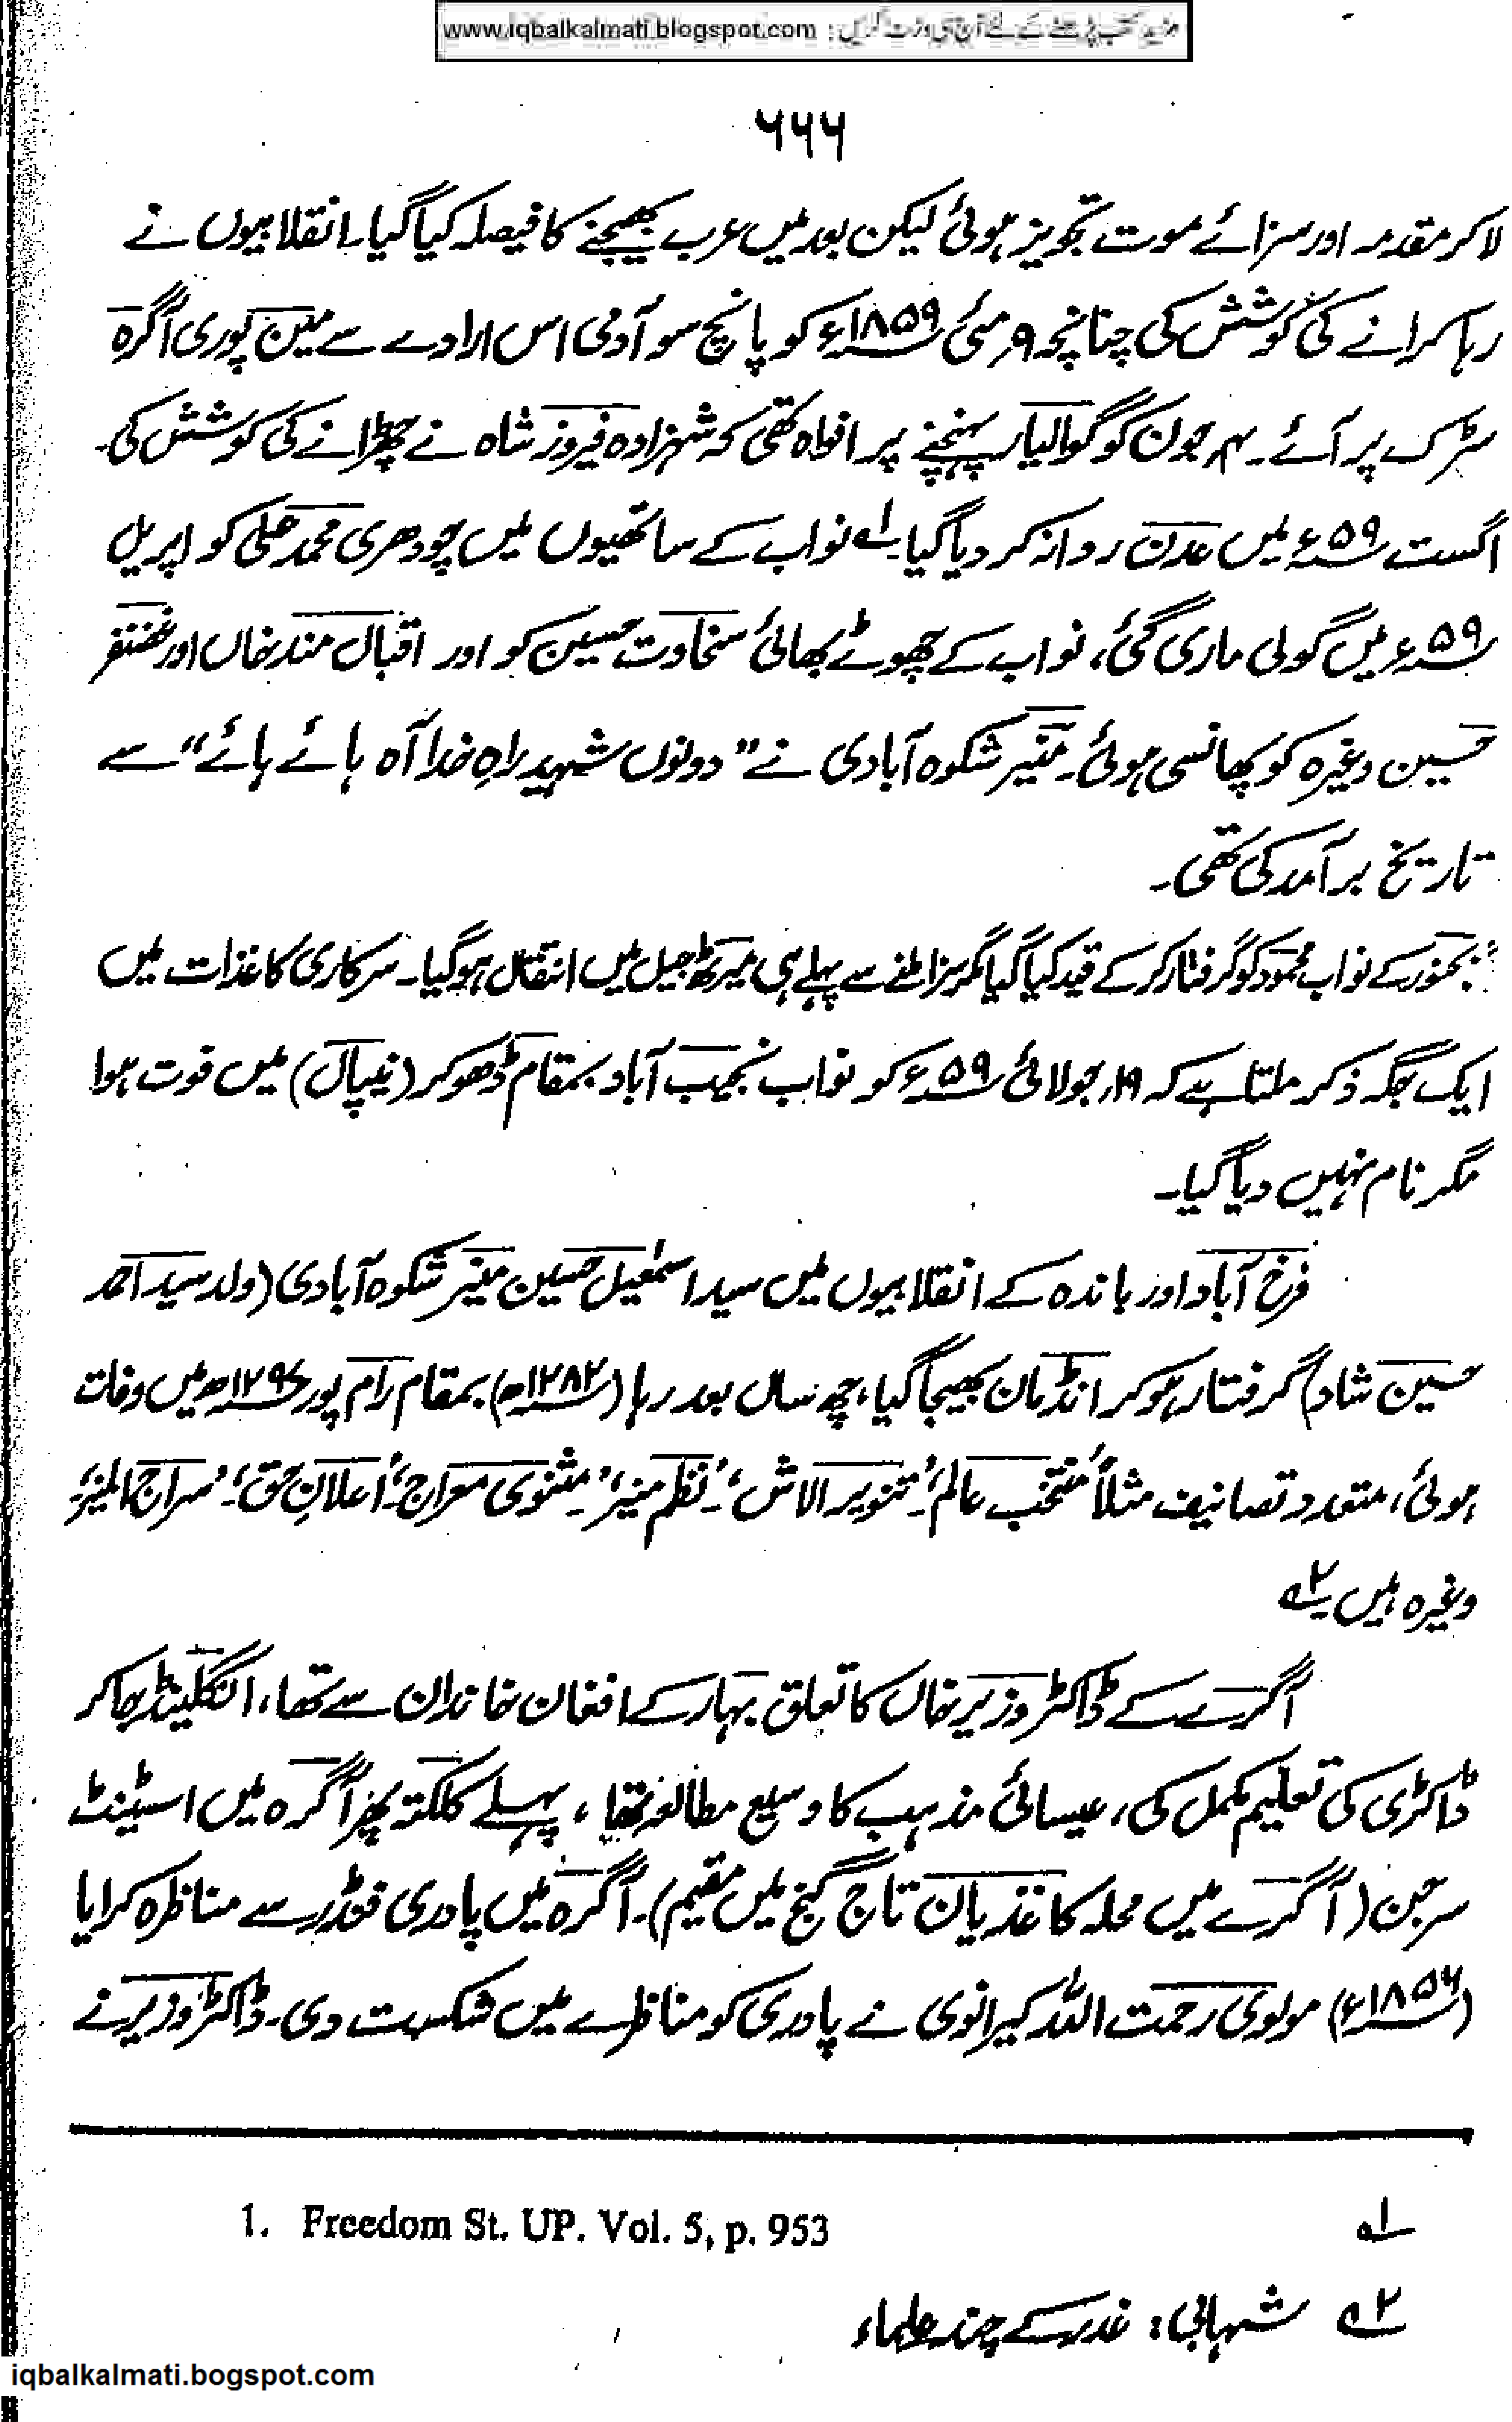 مزید کتب پڑھنے کے لئے آج ہی وزٹ کریں : www.iqbalkalmati.blogspot.com
۵۶۶
لاکر مقدمہ اور سزائے موت تجویز ہوئی لیکن بعد میں عرب بھیجنے کا فیصلہ کیا گیا۔ انقلابیوں نے
رہا کرانے کی کوشش کی چنانچہ ۹ر مئی ۱۸۵۹ء کو پانچ سو آدمی اس ارادے سے مین پوری آگرہ
سڑک پر آئے۔ ۴ر جون کو گوالیار پہنچنے پر افواہ تھی کہ شہزادہ فیروز شاہ نے چھڑانے کی کوشش کی۔
اگست ۵۹ء میں عدن روانہ کر دیا گیا۔ ۱ے نواب کے ساتھیوں میں چودھری محمد علی کو اپریل
۵۹ء میں گولی ماری گئی، نواب کے چھوٹے بھائی سخاوت حسین کو اور اقبال مند خاں اور غضنفر
حسین وغیرہ کو پھانسی ہوئی۔ منیر شکوہ آبادی نے "دونوں شہید راہِ خدا آہ ہائے ہائے" سے
تاریخ برآمد کی تھی۔
بجنور کے نواب محمود کو گرفتار کر کے قید کیا گیا مگر سزا ملنے سے پہلے ہی میرٹھ جیل میں انتقال ہو گیا۔ سرکاری کاغذات میں
ایک جگہ ذکر ملتا ہے کہ ۱۹ر جولائی ۵۹ء کو نواب نجیب آباد بمقام ڈھوکر (نیپال) میں فوت ہوا
مگر نام نہیں دیا گیا۔
فرخ آباد اور باندہ کے انقلابیوں میں سید اسمٰعیل حسین منیر شکوہ آبادی (ولد سید احمد
حسین شاد) گرفتار ہو کر انڈمان بھیجا گیا، چھ سال بعد رہا (۱۲۸۲ھ) بمقام رام پور ۱۲۹۶ھ میں وفات
ہوئی، متعدد تصانیف مثلاً 'منتخب عالم'۔ 'تنویر الاش'۔ 'نظم منیر'۔ 'مثنوی معراج'۔ 'اعلانِ حق'۔ 'سراج المنیر'۔
وغیرہ ہیں ۲ے
آگرے کے ڈاکٹر وزیر خاں کا تعلق بہار کے افغان خاندان سے تھا، انگلینڈ جا کر
ڈاکٹری کی تعلیم مکمل کی، عیسائی مذہب کا وسیع مطالعہ تھا، پہلے کلکتہ پھر آگرہ میں اسٹینٹ
سرجن (آگرے میں محلہ کاغذیان تاج گنج میں مقیم)۔ آگرہ میں پادری فنڈر سے مناظرہ کرایا
(۱۸۵۴ء) مولوی رحمت اللہ کیرانوی نے پادری کو مناظرے میں شکست دی۔ ڈاکٹر وزیر نے
۱ے 1. Freedom St. UP. Vol. 5, p. 953
۲ے شہابی: غدر کے چند علماء
iqbalkalmati.bogspot.com